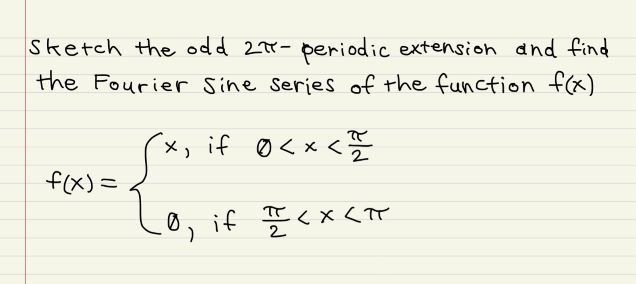 Sketch the odd 2π- periodic extension and find
the Fourier Sine series of the function f(x)
f(x) = { x, if 0 < x < π/2
0, if π/2 < x < π